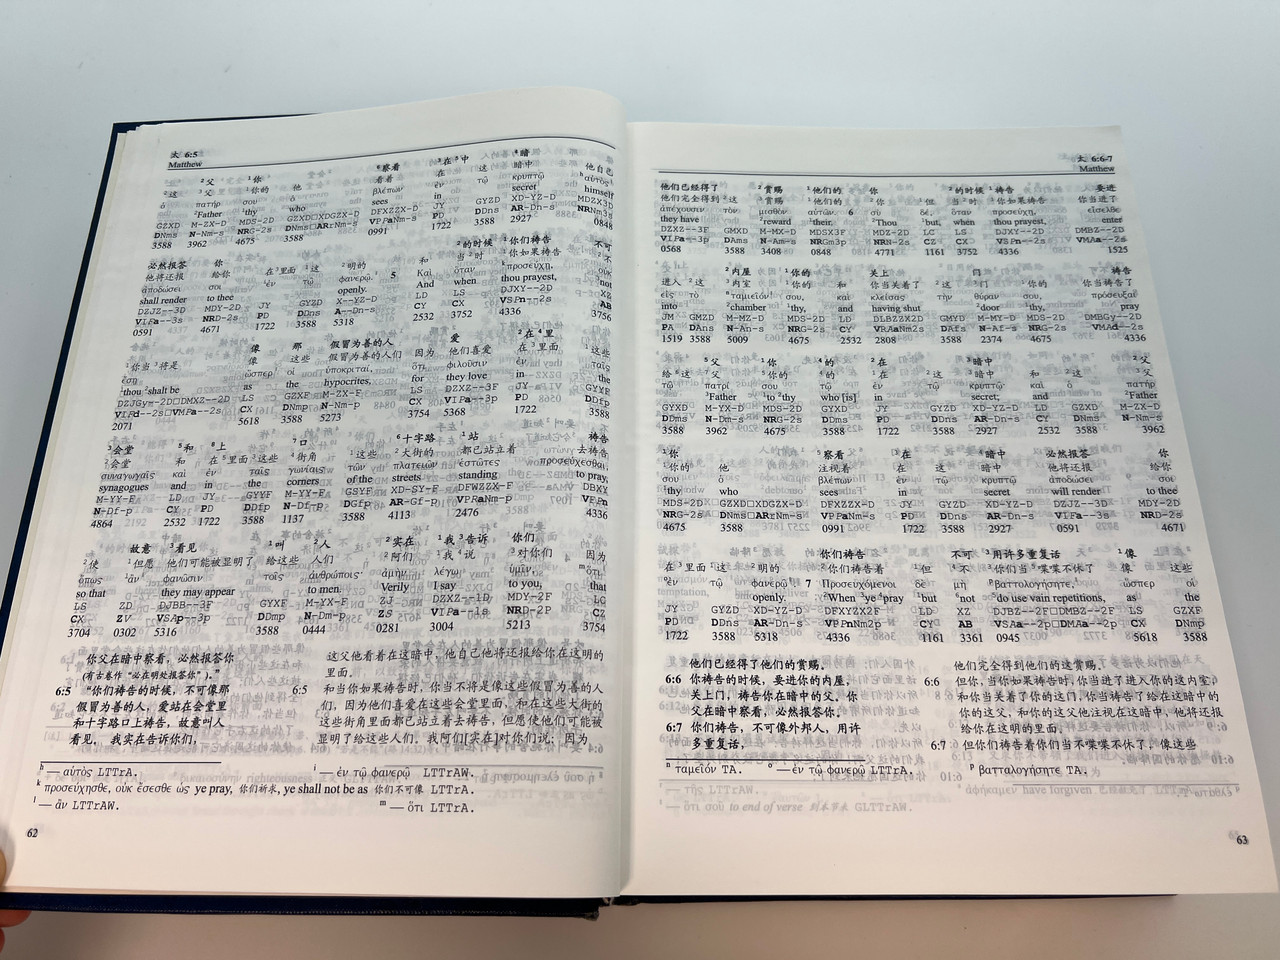 太 6:5
Matthew
²父 ¹你 ⁶察看 ³在 ⁵中 ⁴暗
²这 ³父 ¹你的 他 看着 在 这 暗中 他自己
ὁ πατήρ σου ὁ βλέπων ἐν τῷ κρυπτῷ ʰαὐτὸς
²Father ¹thy who sees in secret himself
GZXD M-ZX-D MDS-2D GZXD□XDGZX-D DFXZZX-D JY GYZD XD-YZ-D MDZX3D
DNms N-Nm-s NRG-2s DNms□ARrNm-s VPPaNm-s PD DDns AR-Dn-s NRNm3s
3588 3962 4675 3588 0991 1722 3588 2927 0848
²的时候 ¹你们祷告 不可
必然报答 你 和 当²时 ¹你如果祷告 不
他将还报 给你 在³里面 ¹这 ²明的
ἀποδώσει σοι ⁱἐν τῷ φανερῷ. 5 Καὶ ὅταν ᵏπροσεύχῃ, οὐκ
shall render to thee openly. And when thou prayest, not
DZJZ--3D MDY-2D JY GYZD X--YZ-D LD LS DJXY--2D XZ
VIFa--3s NRD-2s PD DDns A--Dn-s CY CX VSPn--2s AB
0591 4671 1722 3588 5318 2532 3752 4336 3756
像 那 假冒为善的人 爱 ²在⁴里
¹你当³将是 像 这些 假冒为善的人们 因为 他们喜爱 在³里面 这些
ἔσῃ ὥσπερ οἱ ὑποκριταί, ὅτι φιλοῦσιν ἐν ταῖς
¹thou ²shalt be as the hypocrites, for they love in the
DZJGy--2D□DMXZ--2D LS GZXF M-ZX-F LS DZXZ--3F JY GYYF
VIFd--2s□VMFa--2s CX DNmp N-Nm-p CX VIPa--3p PD DDfp
2071 5618 3588 5273 3754 5368 1722 3588
³会堂 ⁵和 ⁸上 ⁷口 ⁶十字路 ¹站 祷告
²会堂 和 在⁵里面 ²这些 ⁴街角 ¹这些 ²大街的 都已站立着 去祷告
συναγωγαῖς καὶ ἐν ταῖς γωνίαις τῶν πλατειῶν ἑστῶτες προσεύχεσθαι,
synagogues and in the corners of the streets standing to pray,
M-YY-F LD JY GYYF M-YY-F GSYF XD-SY-F DFWZZX-F DBXY
N-Df-p CY PD DDfp N-Df-p DGfp AR-Gf-p VPRaNm-p VPPn
4864 2532 1722 3588 1137 3588 4113 2476 4336
故意 ³看见 ¹叫 ²人 ²实在 ¹我 ³告诉 你们
²使 ¹但愿 他们可能被显明了 给这些 人们 ²阿们 ¹我 ⁴说 ³对你们 因为
ὅπως ˡἂν φανῶσιν τοῖς ἀνθρώποις· ἀμὴν λέγω ὑμῖν, ᵐὅτι
so that they may appear to men. Verily I say to you,
LS ZD DJBB--3F GYXF M-YX-F ZJ DZXZ--1D MDY-2P LC
CX ZV VSAp--3p DDmp N-Dm-p ZS VIPa--1s NRD-2P CZ
3704 0302 5316 3588 0444 0281 3004 5213 3754
你父在暗中察看，必然报答你
（有古卷作“必在明处报答你”）。”
6:5 “你们祷告的时候，不可像那
假冒为善的人，爱站在会堂里
和十字路口上祷告，故意叫人
看见。我实在告诉你们，
这父他看着在这暗中，他自己他将还报给你在这明的
里面。
6:5 和当你如果祷告时，你当不将是像这些假冒为善的人
们，因为他们喜爱在这些会堂里面、和在这些大街的
这些街角里面都已站立着去祷告，但愿使他们可能被
显明了给这些人们。我阿们[实在]对你们说：因为
ʰ — αὐτὸς LTTrA. ⁱ — ἐν τῷ φανερῷ LTTrAW.
ᵏ προσεύχησθε, οὐκ ἔσεσθε ὡς ye pray, 你们祈求, ye shall not be as 你们不可像 LTTrA.
ˡ — ἂν LTTrAW. ᵐ — ὅτι LTTrA.
62
太 6:6-7
Matthew
他们已经得了 ²赏赐 ¹他们的 你 ²的时候 ¹祷告 要进
他们完全得到 ²这 ³赏赐 ¹他们的 你 但 当²时 ¹你如果祷告 你当进了
ἀπέχουσιν τὸν μισθὸν αὐτῶν. 6 σὺ δέ, ὅταν προσεύχῃ, εἴσελθε
they have ²reward ¹their. ²Thou ¹but, when thou prayest, enter
DZXZ--3F GMXD M-MX-D MDS-2D MDZ-2D LC LS DJXY--2D DMBZ--2D
VIPa--3p DAms N-Am-s NRGm3p NRN-2s CZ CX VSPn--2s VMAa--2s
0568 3588 3408 0848 4771 1161 3752 4336 1525
²内屋 ¹你的 关上 门 祷告
进入 ²这 ³内室 ¹你的 和 你当关着了 ²这 ³门 ¹你的 你当祷告了
εἰς τὸ ⁿταμιεῖόν σου, καὶ κλείσας τὴν θύραν σου, πρόσευξαι
²chamber ¹thy, and having shut ²door thy, pray
JM GMZD M-MZ-D MDS-2D LD DLBZZX2D GMYD M-MY-D MDS-2D DMBGy--2D
PA DAns N-An-s NRG-2s CY VRAaNm2s DAfs N-Af-s NRG-2s VMAd--2s
1519 3588 5009 4675 2532 2808 3588 2374 4675 4336
⁵父 ¹你 ⁴的 ²在 ³暗中 ²父
给⁶这 ⁷父 ⁵你的 ⁴的 ¹在 ²这 ³暗中 和 ²这 ³父
τῷ πατρί σου τῷ ἐν τῷ κρυπτῷ· καὶ ὁ πατήρ
³Father ¹to ²thy who [is] in secret; and ²Father
GYXD M-YX-D MDS-2D GYXD JY GYZD XD-YZ-D LD GZXD M-ZX-D
DDms N-Dm-s NRG-2s DDms PD DDns AR-Dn-s CY DNms N-Nm-s
3588 3962 4675 3588 1722 3588 2927 2532 3588 3962
¹你 ⁵察看 在 ⁴暗中 必然报答 你
¹你的 他 注视着 在 这 暗中 他将还报 给你
σου ὁ βλέπων ἐν τῷ κρυπτῷ ἀποδώσει σοι
¹thy who sees in secret will render to thee
MDS-2D GZXD□XDGZX-D DFXZZX-D JY GYZD XD-YZ-D DZJZ--3D MDY-2D
NRG-2s DNms□ARrNm-s VPPaNm-s PD DDns AR-Dn-s VIFa--3s NRD-2s
4675 3588 0991 1722 3588 2927 0591 4671
你们祷告 不可 ³用许多重复话 ¹像
在³里面 ¹这 ²明的 ²你们祷告着 ¹但 ⁴不 ³你们当⁵喋喋不休了 像 这些
ᵒἐν τῷ φανερῷ. 7 Προσευχόμενοι δὲ μὴ ᵖβαττολογήσητε, ὥσπερ οἱ
openly. ²When ³ye ⁴pray ¹but not do use vain repetitions, as the
JY GYZD XD-YZ-D DFXYZX2F LD XZ DJBZ--2F□DMBZ--2F LS GZXF
PD DDns AR-Dn-s VPPnNm2p CY AB VSAa--2p□DMAa--2p CX DNmp
1722 3588 5318 4336 1161 3361 0945 5618 3588
他们已经得了他们的赏赐。
6:6 你祷告的时候，要进你的内屋，
关上门，祷告你在暗中的父。你
父在暗中察看，必然报答你。
6:7 你们祷告，不可像外邦人，用许
多重复话，
他们完全得到他们的这赏赐。
6:6 但你，当你如果祷告时，你当进了进入你的这内室，
和你当关着了你的这门，你当祷告了给在这暗中的
你的这父，和你的这父他注视在这暗中，他将还报
给你在这明的里面。
6:7 但你们祷告着你们当不喋喋不休了，像这些
ⁿ ταμεῖόν TA. ᵒ — ἐν τῷ φανερῷ LTTrA. ᵖ βατταλογήσητε TA.
63